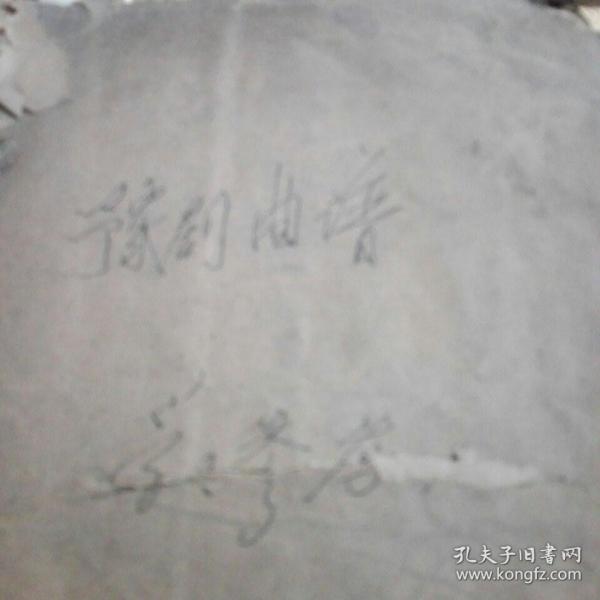 豫剧曲谱
孔夫子旧书网
www.kongfz.com